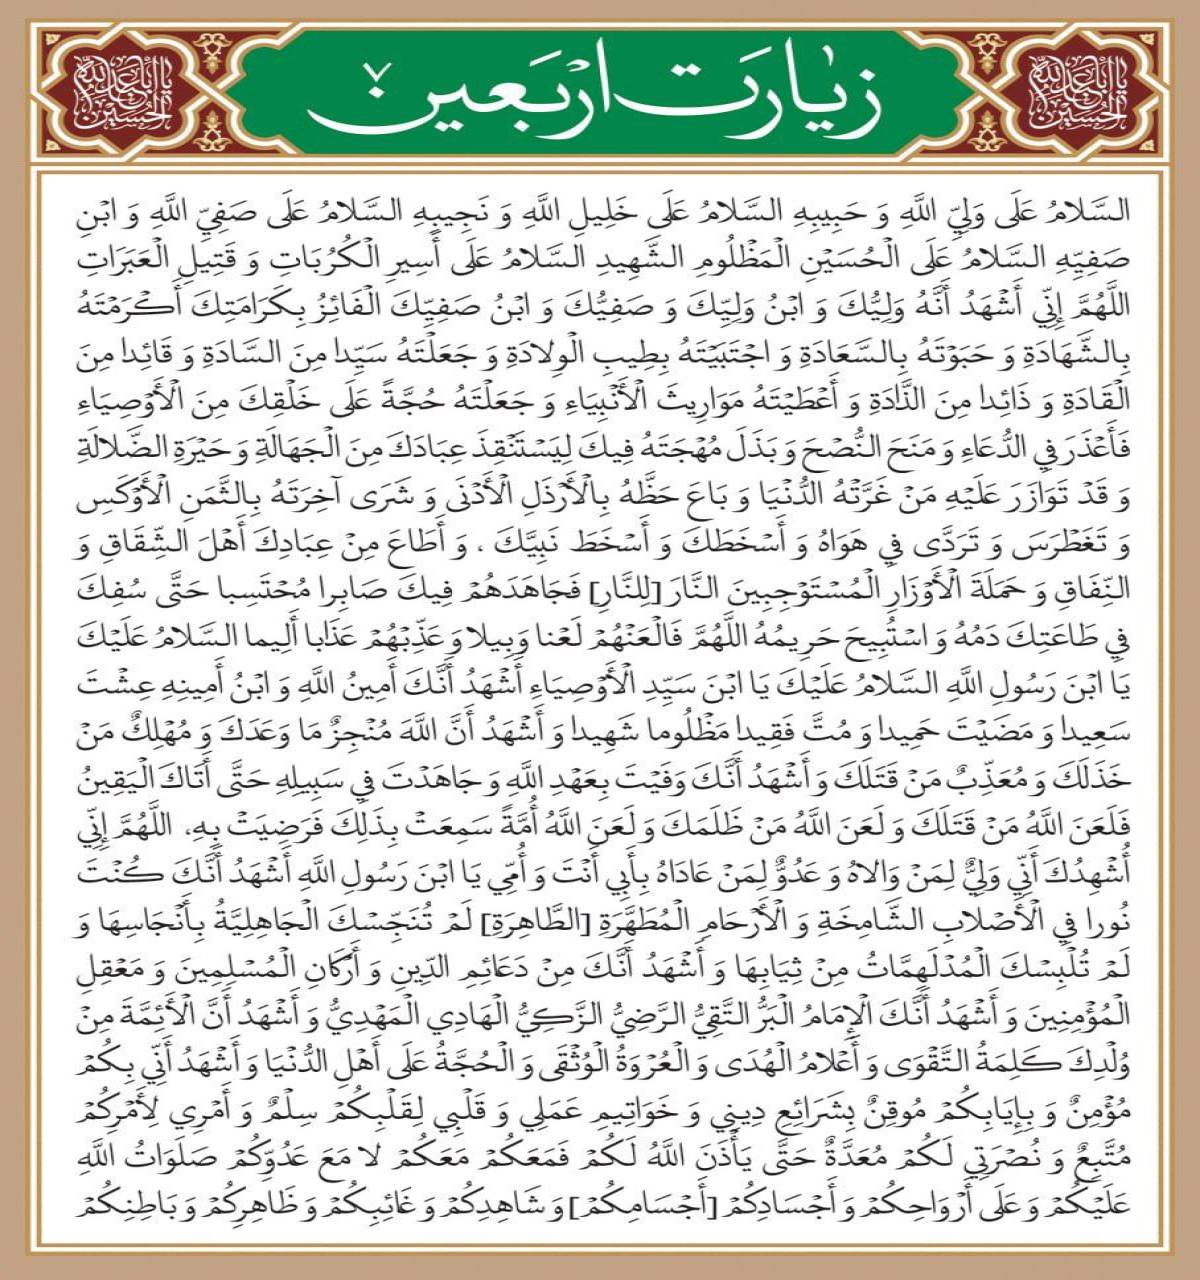 زیارت اربعین ۷
یا اباعبدالله الحسین
یا اباعبدالله الحسین
السَّلامُ عَلَى وَلِيِّ اللَّهِ وَ حَبِيبِهِ السَّلامُ عَلَى خَلِيلِ اللَّهِ وَ نَجِيبِهِ السَّلامُ عَلَى صَفِيِّ اللَّهِ وَ ابْنِ
صَفِيِّهِ السَّلامُ عَلَى الْحُسَيْنِ الْمَظْلُومِ الشَّهِيدِ السَّلامُ عَلَى أَسِيرِ الْكُرُبَاتِ وَ قَتِيلِ الْعَبَرَاتِ
اللَّهُمَّ إِنِّي أَشْهَدُ أَنَّهُ وَلِيُّكَ وَ ابْنُ وَلِيِّكَ وَ صَفِيُّكَ وَ ابْنُ صَفِيِّكَ الْفَائِزُ بِكَرَامَتِكَ أَكْرَمْتَهُ
بِالشَّهَادَةِ وَ حَبَوْتَهُ بِالسَّعَادَةِ وَ اجْتَبَيْتَهُ بِطِيبِ الْوِلادَةِ وَ جَعَلْتَهُ سَيِّدا مِنَ السَّادَةِ وَ قَائِدا مِنَ
الْقَادَةِ وَ ذَائِدا مِنَ الذَّادَةِ وَ أَعْطَيْتَهُ مَوَارِيثَ الْأَنْبِيَاءِ وَ جَعَلْتَهُ حُجَّةً عَلَى خَلْقِكَ مِنَ الْأَوْصِيَاءِ
فَأَعْذَرَ فِي الدُّعَاءِ وَ مَنَحَ النُّصْحَ وَ بَذَلَ مُهْجَتَهُ فِيكَ لِيَسْتَنْقِذَ عِبَادَكَ مِنَ الْجَهَالَةِ وَ حَيْرَةِ الضَّلالَةِ
وَ قَدْ تَوَازَرَ عَلَيْهِ مَنْ غَرَّتْهُ الدُّنْيَا وَ بَاعَ حَظَّهُ بِالْأَرْذَلِ الْأَدْنَى وَ شَرَى آخِرَتَهُ بِالثَّمَنِ الْأَوْكَسِ
وَ تَغَطْرَسَ وَ تَرَدَّى فِي هَوَاهُ وَ أَسْخَطَكَ وَ أَسْخَطَ نَبِيَّكَ ، وَ أَطَاعَ مِنْ عِبَادِكَ أَهْلَ الشِّقَاقِ وَ
النِّفَاقِ وَ حَمَلَةَ الْأَوْزَارِ الْمُسْتَوْجِبِينَ النَّارَ [لِلنَّارِ] فَجَاهَدَهُمْ فِيكَ صَابِرا مُحْتَسِبا حَتَّى سُفِكَ
فِي طَاعَتِكَ دَمُهُ وَ اسْتُبِيحَ حَرِيمُهُ اللَّهُمَّ فَالْعَنْهُمْ لَعْنا وَبِيلا وَ عَذِّبْهُمْ عَذَابا أَلِيما السَّلامُ عَلَيْكَ
يَا ابْنَ رَسُولِ اللَّهِ السَّلامُ عَلَيْكَ يَا ابْنَ سَيِّدِ الْأَوْصِيَاءِ أَشْهَدُ أَنَّكَ أَمِينُ اللَّهِ وَ ابْنُ أَمِينِهِ عِشْتَ
سَعِيدا وَ مَضَيْتَ حَمِيدا وَ مُتَّ فَقِيدا مَظْلُوما شَهِيدا وَ أَشْهَدُ أَنَّ اللَّهَ مُنْجِزٌ مَا وَعَدَكَ وَ مُهْلِكٌ مَنْ
خَذَلَكَ وَ مُعَذِّبٌ مَنْ قَتَلَكَ وَ أَشْهَدُ أَنَّكَ وَفَيْتَ بِعَهْدِ اللَّهِ وَ جَاهَدْتَ فِي سَبِيلِهِ حَتَّى أَتَاكَ الْيَقِينُ
فَلَعَنَ اللَّهُ مَنْ قَتَلَكَ وَ لَعَنَ اللَّهُ مَنْ ظَلَمَكَ وَ لَعَنَ اللَّهُ أُمَّةً سَمِعَتْ بِذَلِكَ فَرَضِيَتْ بِهِ، اللَّهُمَّ إِنِّي
أُشْهِدُكَ أَنِّي وَلِيٌّ لِمَنْ وَالاهُ وَ عَدُوٌّ لِمَنْ عَادَاهُ بِأَبِي أَنْتَ وَ أُمِّي يَا ابْنَ رَسُولِ اللَّهِ أَشْهَدُ أَنَّكَ كُنْتَ
نُورا فِي الْأَصْلابِ الشَّامِخَةِ وَ الْأَرْحَامِ الْمُطَهَّرَةِ [الطَّاهِرَةِ] لَمْ تُنَجِّسْكَ الْجَاهِلِيَّةُ بِأَنْجَاسِهَا وَ
لَمْ تُلْبِسْكَ الْمُدْلَهِمَّاتُ مِنْ ثِيَابِهَا وَ أَشْهَدُ أَنَّكَ مِنْ دَعَائِمِ الدِّينِ وَ أَرْكَانِ الْمُسْلِمِينَ وَ مَعْقِلِ
الْمُؤْمِنِينَ وَ أَشْهَدُ أَنَّكَ الْإِمَامُ الْبَرُّ التَّقِيُّ الرَّضِيُّ الزَّكِيُّ الْهَادِي الْمَهْدِيُّ وَ أَشْهَدُ أَنَّ الْأَئِمَّةَ مِنْ
وُلْدِكَ كَلِمَةُ التَّقْوَى وَ أَعْلامُ الْهُدَى وَ الْعُرْوَةُ الْوُثْقَى وَ الْحُجَّةُ عَلَى أَهْلِ الدُّنْيَا وَ أَشْهَدُ أَنِّي بِكُمْ
مُؤْمِنٌ وَ بِإِيَابِكُمْ مُوقِنٌ بِشَرَائِعِ دِينِي وَ خَوَاتِيمِ عَمَلِي وَ قَلْبِي لِقَلْبِكُمْ سِلْمٌ وَ أَمْرِي لِأَمْرِكُمْ
مُتَّبِعٌ وَ نُصْرَتِي لَكُمْ مُعَدَّةٌ حَتَّى يَأْذَنَ اللَّهُ لَكُمْ فَمَعَكُمْ مَعَكُمْ لا مَعَ عَدُوِّكُمْ صَلَوَاتُ اللَّهِ
عَلَيْكُمْ وَ عَلَى أَرْوَاحِكُمْ وَ أَجْسَادِكُمْ [أَجْسَامِكُمْ] وَ شَاهِدِكُمْ وَ غَائِبِكُمْ وَ ظَاهِرِكُمْ وَ بَاطِنِكُمْ